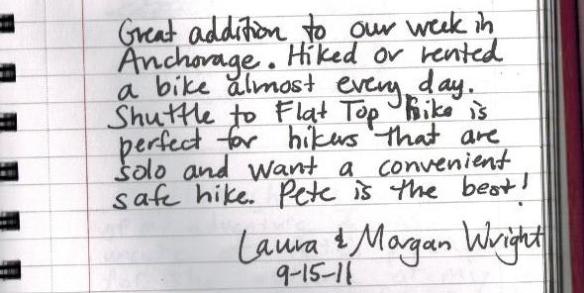 Great addition to our week in
Anchorage. Hiked or rented
a bike almost every day.
Shuttle to Flat Top hike is
perfect for hikers that are
solo and want a convenient
safe hike. Pete is the best!
Laura & Morgan Wright
9-15-11